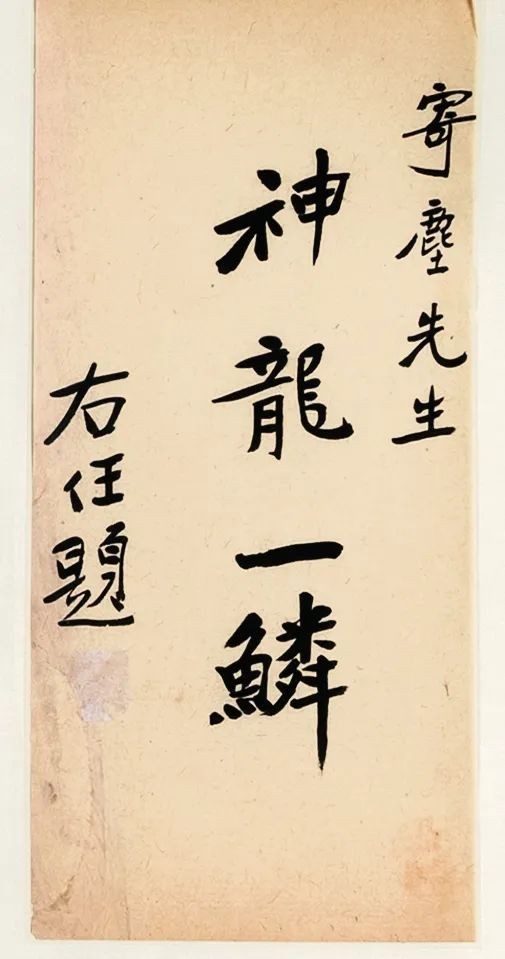 寄塵先生
神龍一鱗
右任題